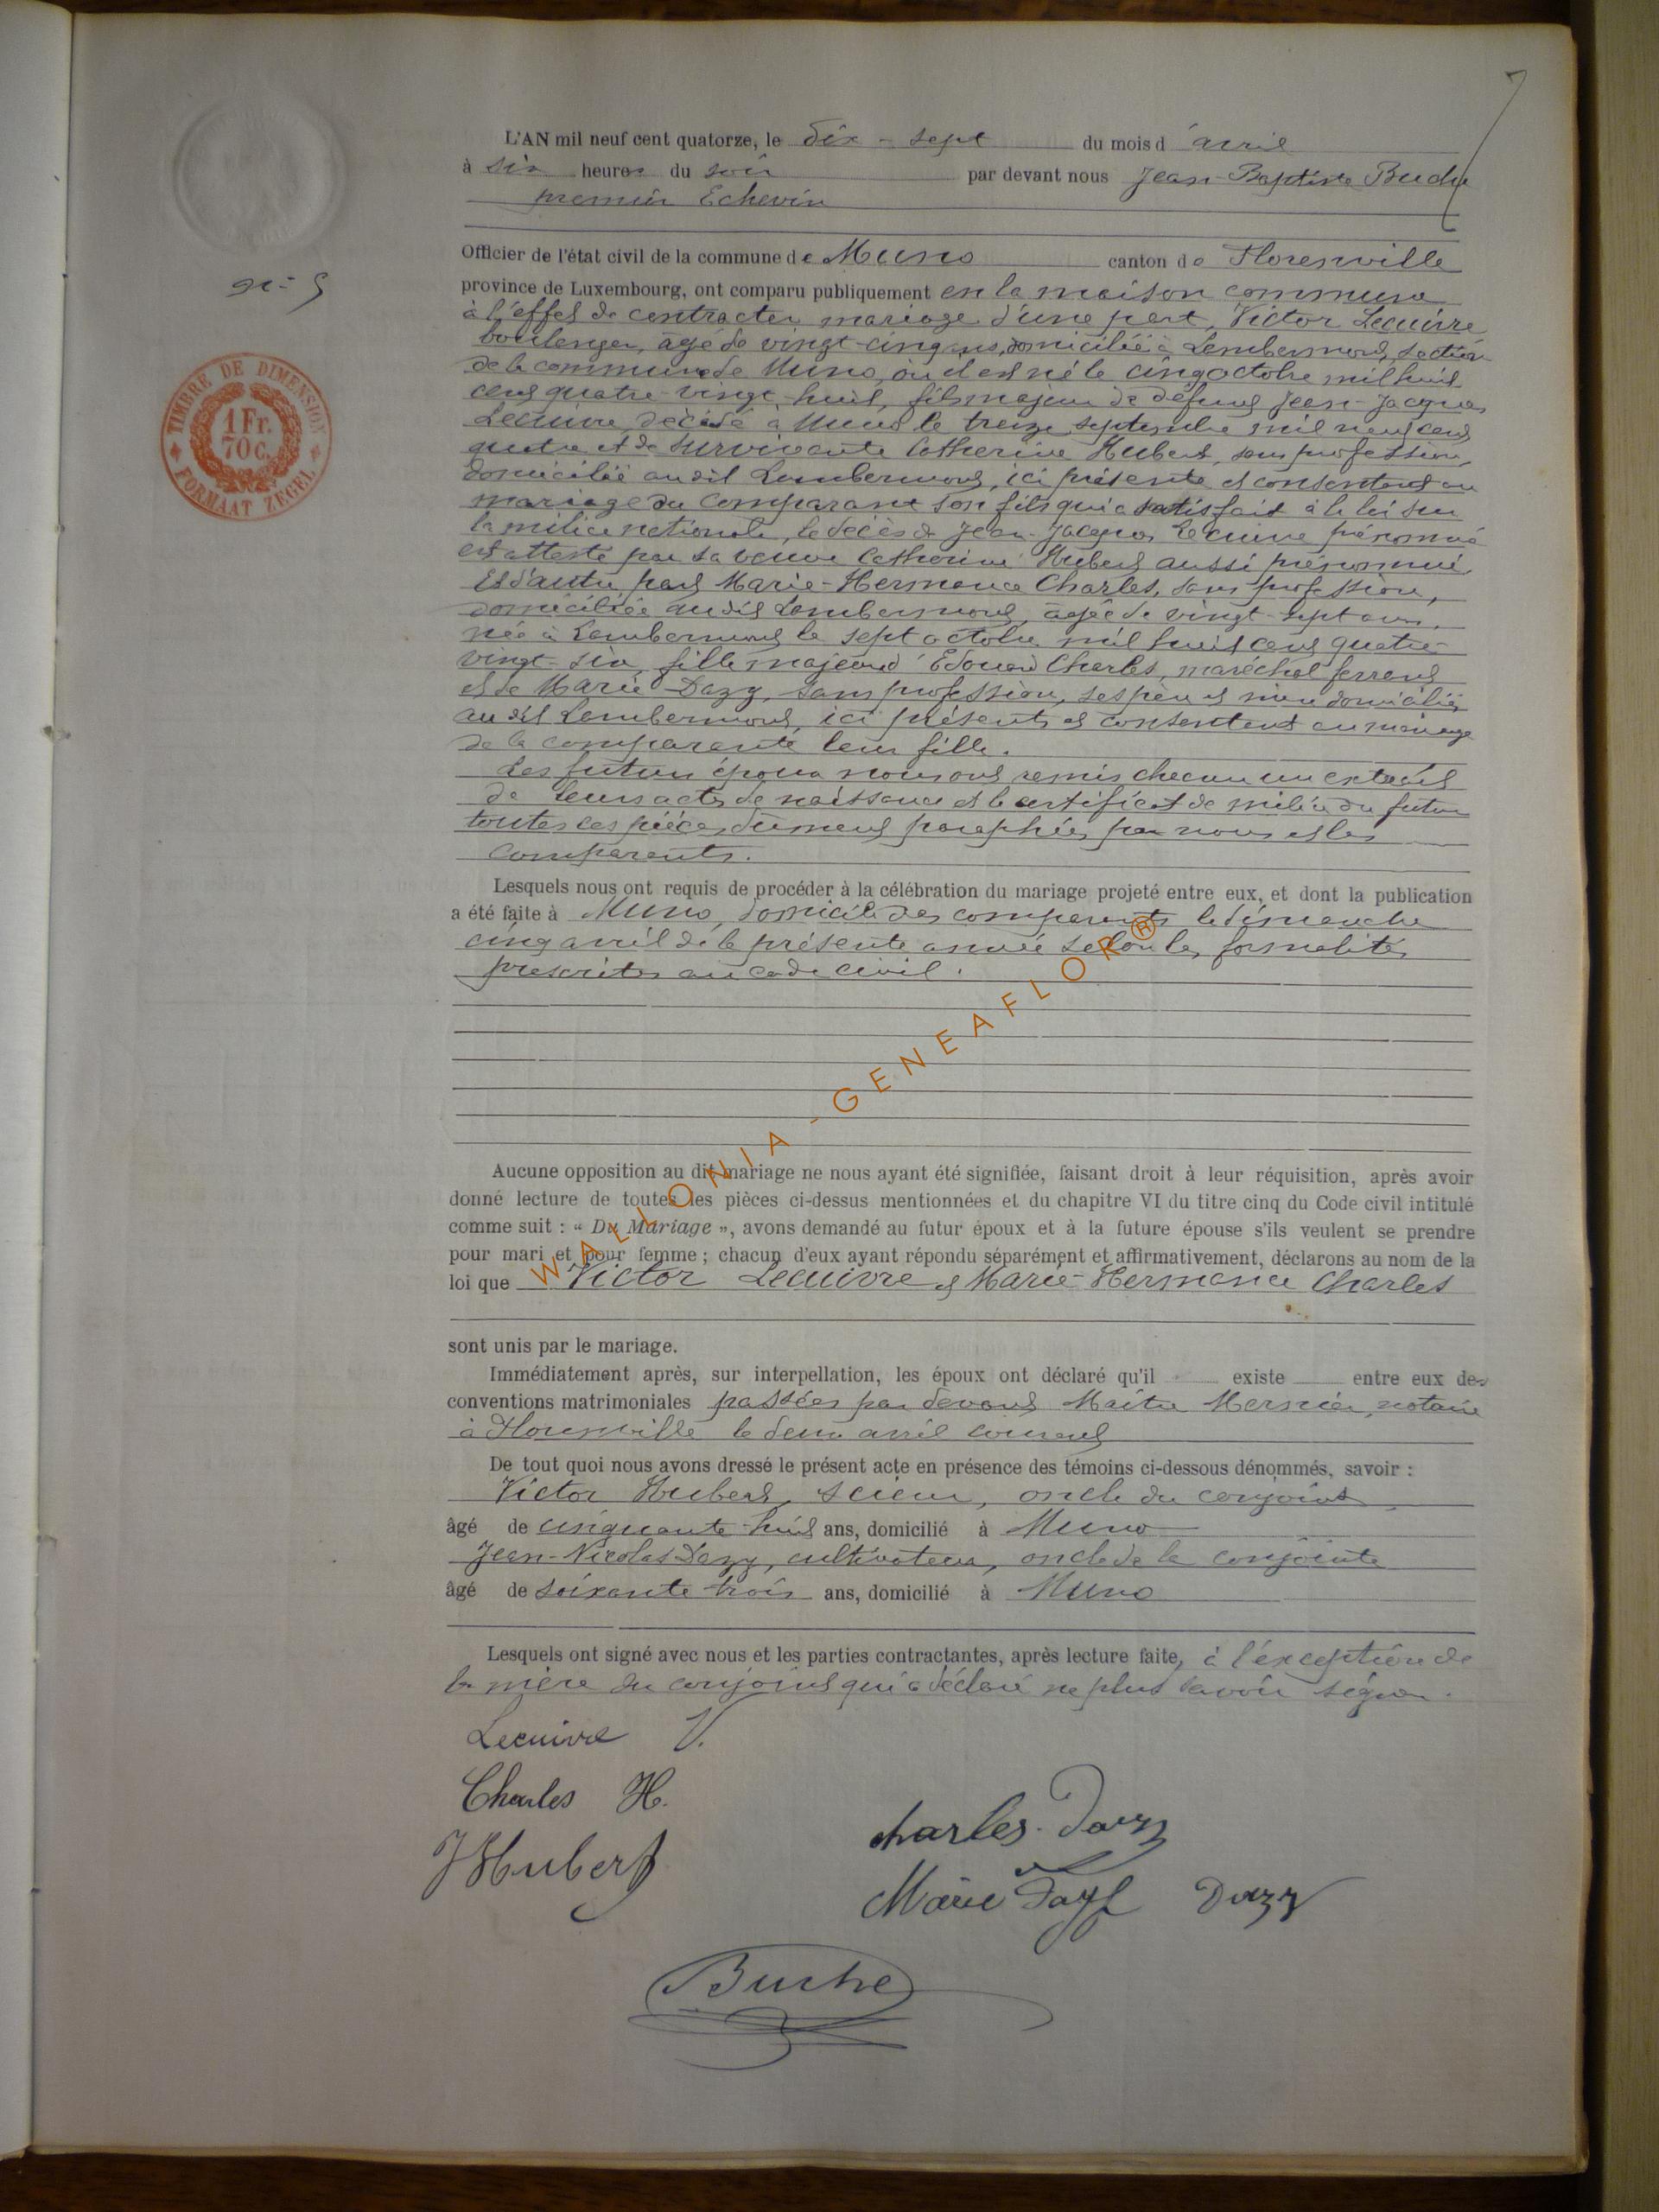 7
L'AN mil neuf cent quatorze, le dix-sept du mois d'avril
à six heures du soir par devant nous Jean-Baptiste Buche
premier Echevin
Officier de l'état civil de la commune de Muno canton de Florenville
province de Luxembourg, ont comparu publiquement en la maison commune
à l'effet de contracter mariage d'une part, Victor Lecuivre
boulenger, âgé de vingt-cinq ans, domicilié à Lambermont, section
de la commune de Muno, où il est né le cinq octobre mil huit
cent quatre-vingt-huit, fils majeur de défunt Jean-Jacques
Lecuivre décédé à Muno le treize septembre mil neuf cent
quatre et de survivante Catherine Hubert, sans profession,
domiciliée audit Lambermont, ici présente et consentant au
mariage du comparant son fils qui a satisfait à la loi sur
la milice nationale, le décès de Jean-Jacques Lecuivre prénommé
est attesté par sa veuve Catherine Hubert aussi prénommée.
Et d'autre part Marie-Hermance Charles, sans profession,
domiciliée audit Lambermont, âgée de vingt-sept ans,
née à Lambermont le sept octobre mil huit cent quatre-
vingt-six, fille majeure d'Edouard Charles, maréchal ferrant
et de Marie Dazy, sans profession, ses père et mère domiciliés
au dit Lambermont, ici présents et consentant au mariage
de la comparante leur fille.
Les futurs époux nous ont remis chacun un extrait
de leurs actes de naissance et le certificat de milice du futur
toutes ces pièces dûment paraphées par nous et les
comparants.
Lesquels nous ont requis de procéder à la célébration du mariage projeté entre eux, et dont la publication
a été faite à Muno, domicile des comparants le dimanche
cinq avril de la présente année selon les formalités
prescrites au code civil.
Aucune opposition au dit mariage ne nous ayant été signifiée, faisant droit à leur réquisition, après avoir
donné lecture de toutes les pièces ci-dessus mentionnées et du chapitre VI du titre cinq du Code civil intitulé
comme suit : « Du Mariage », avons demandé au futur époux et à la future épouse s'ils veulent se prendre
pour mari et pour femme ; chacun d'eux ayant répondu séparément et affirmativement, déclarons au nom de la
loi que Victor Lecuivre et Marie-Hermance Charles
sont unis par le mariage.
Immédiatement après, sur interpellation, les époux ont déclaré qu'il existe entre eux des
conventions matrimoniales passées par devant Maître Mernier, notaire
à Florenville le deux avril courant
De tout quoi nous avons dressé le présent acte en présence des témoins ci-dessous dénommés, savoir :
Victor Hubert, scieur, oncle du conjoint,
âgé de cinquante-huit ans, domicilié à Muno
Jean-Nicolas Dazy, cultivateur, oncle de la conjointe
âgé de soixante-trois ans, domicilié à Muno
Lesquels ont signé avec nous et les parties contractantes, après lecture faite, à l'exception de
la mère du conjoint qui a déclaré ne plus savoir signer.
Lecuivre V.
Charles H.
Charles-Dazy
VHubert
Marie Dazy Dazy
Buche
n° 5
TIMBRE DE DIMENSION
1 Fr.
70 C.
FORMAAT ZEGEL
WALLONIA-GENEAFLOR®